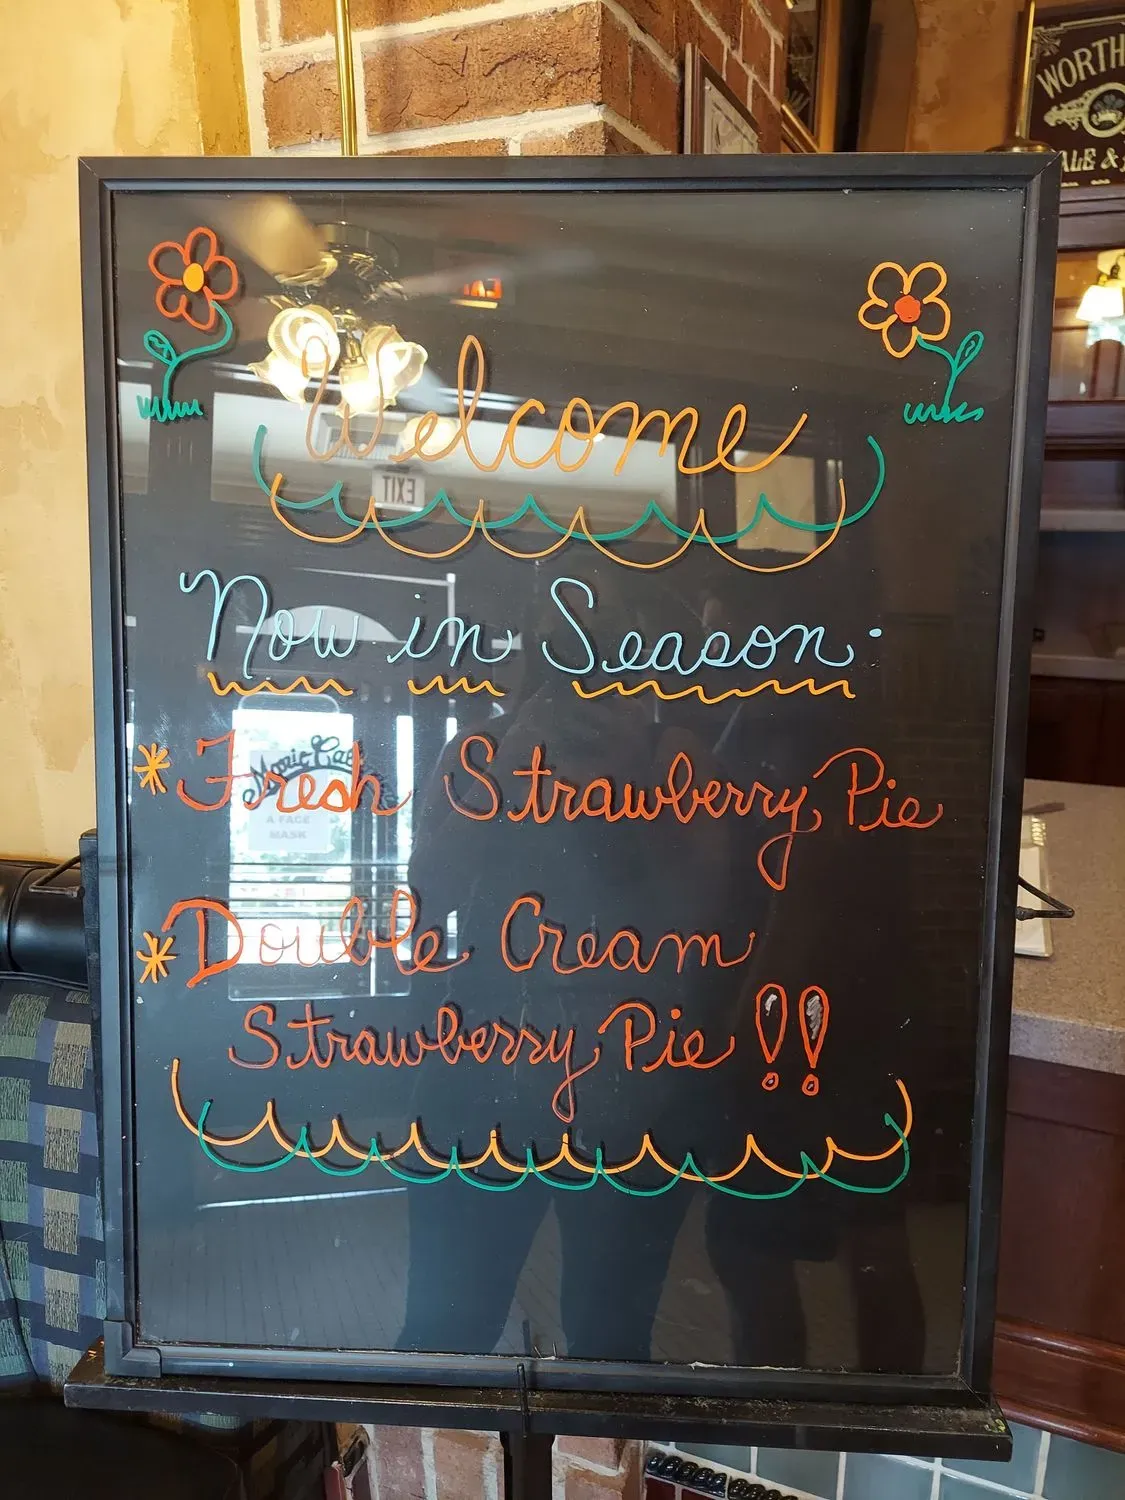 WORTH
ALE &
Welcome
EXIT
Now in Season:
* Fresh Strawberry Pie
A FACE
MASK
* Double Cream
Strawberry Pie!!